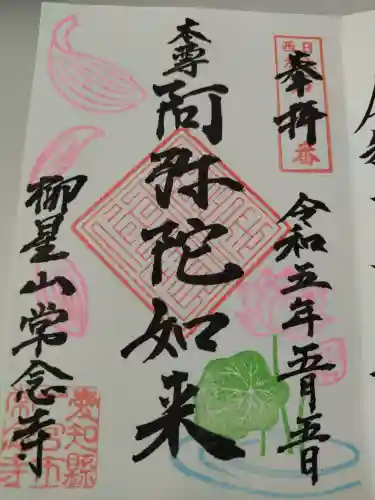 奉拝
令和五年五月五日
本尊
阿弥陀如来
柳星山常念寺
愛知縣